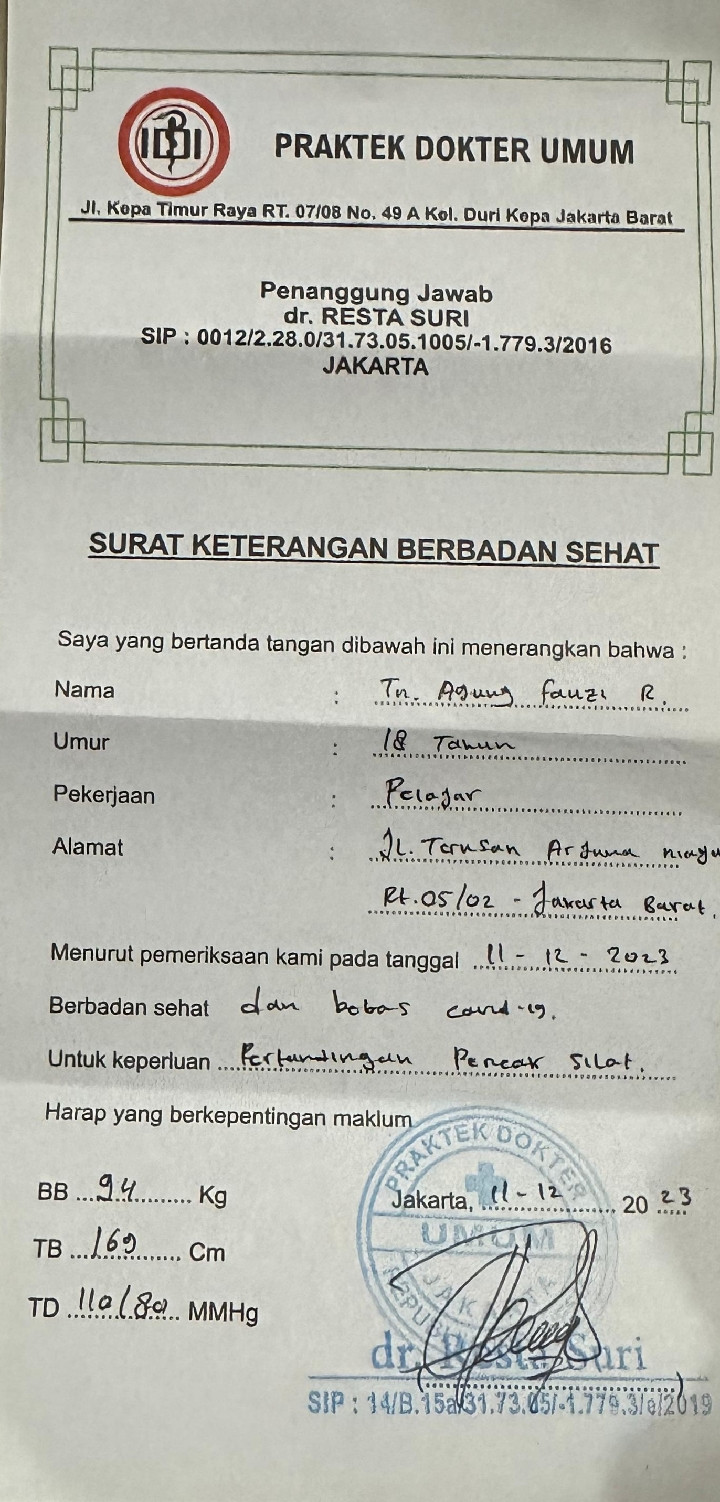 IDI
PRAKTEK DOKTER UMUM
Jl. Kepa Timur Raya RT. 07/08 No. 49 A Kel. Duri Kepa Jakarta Barat
Penanggung Jawab
dr. RESTA SURI
SIP : 0012/2.28.0/31.73.05.1005/-1.779.3/2016
JAKARTA
SURAT KETERANGAN BERBADAN SEHAT
Saya yang bertanda tangan dibawah ini menerangkan bahwa :
Nama : Tn. Agung Fauzi R.
Umur : 18 Tahun
Pekerjaan : Pelajar
Alamat : Jl. Terusan Arjuna
Rt.05/02 - Jakarta Barat.
Menurut pemeriksaan kami pada tanggal 11 - 12 - 2023
Berbadan sehat dan bebas covid-19.
Untuk keperluan Pertandingan Pencak Silat.
Harap yang berkepentingan maklum
PRAKTEK DOKTER
UMUM
JAKARTA
BB 94 Kg
Jakarta, 11 - 12 2023
TB 169 Cm
TD 110/80 MMHg
dr. Resta Suri
SIP : 14/B.15a/31.73.05/-1.779.3/e/2019